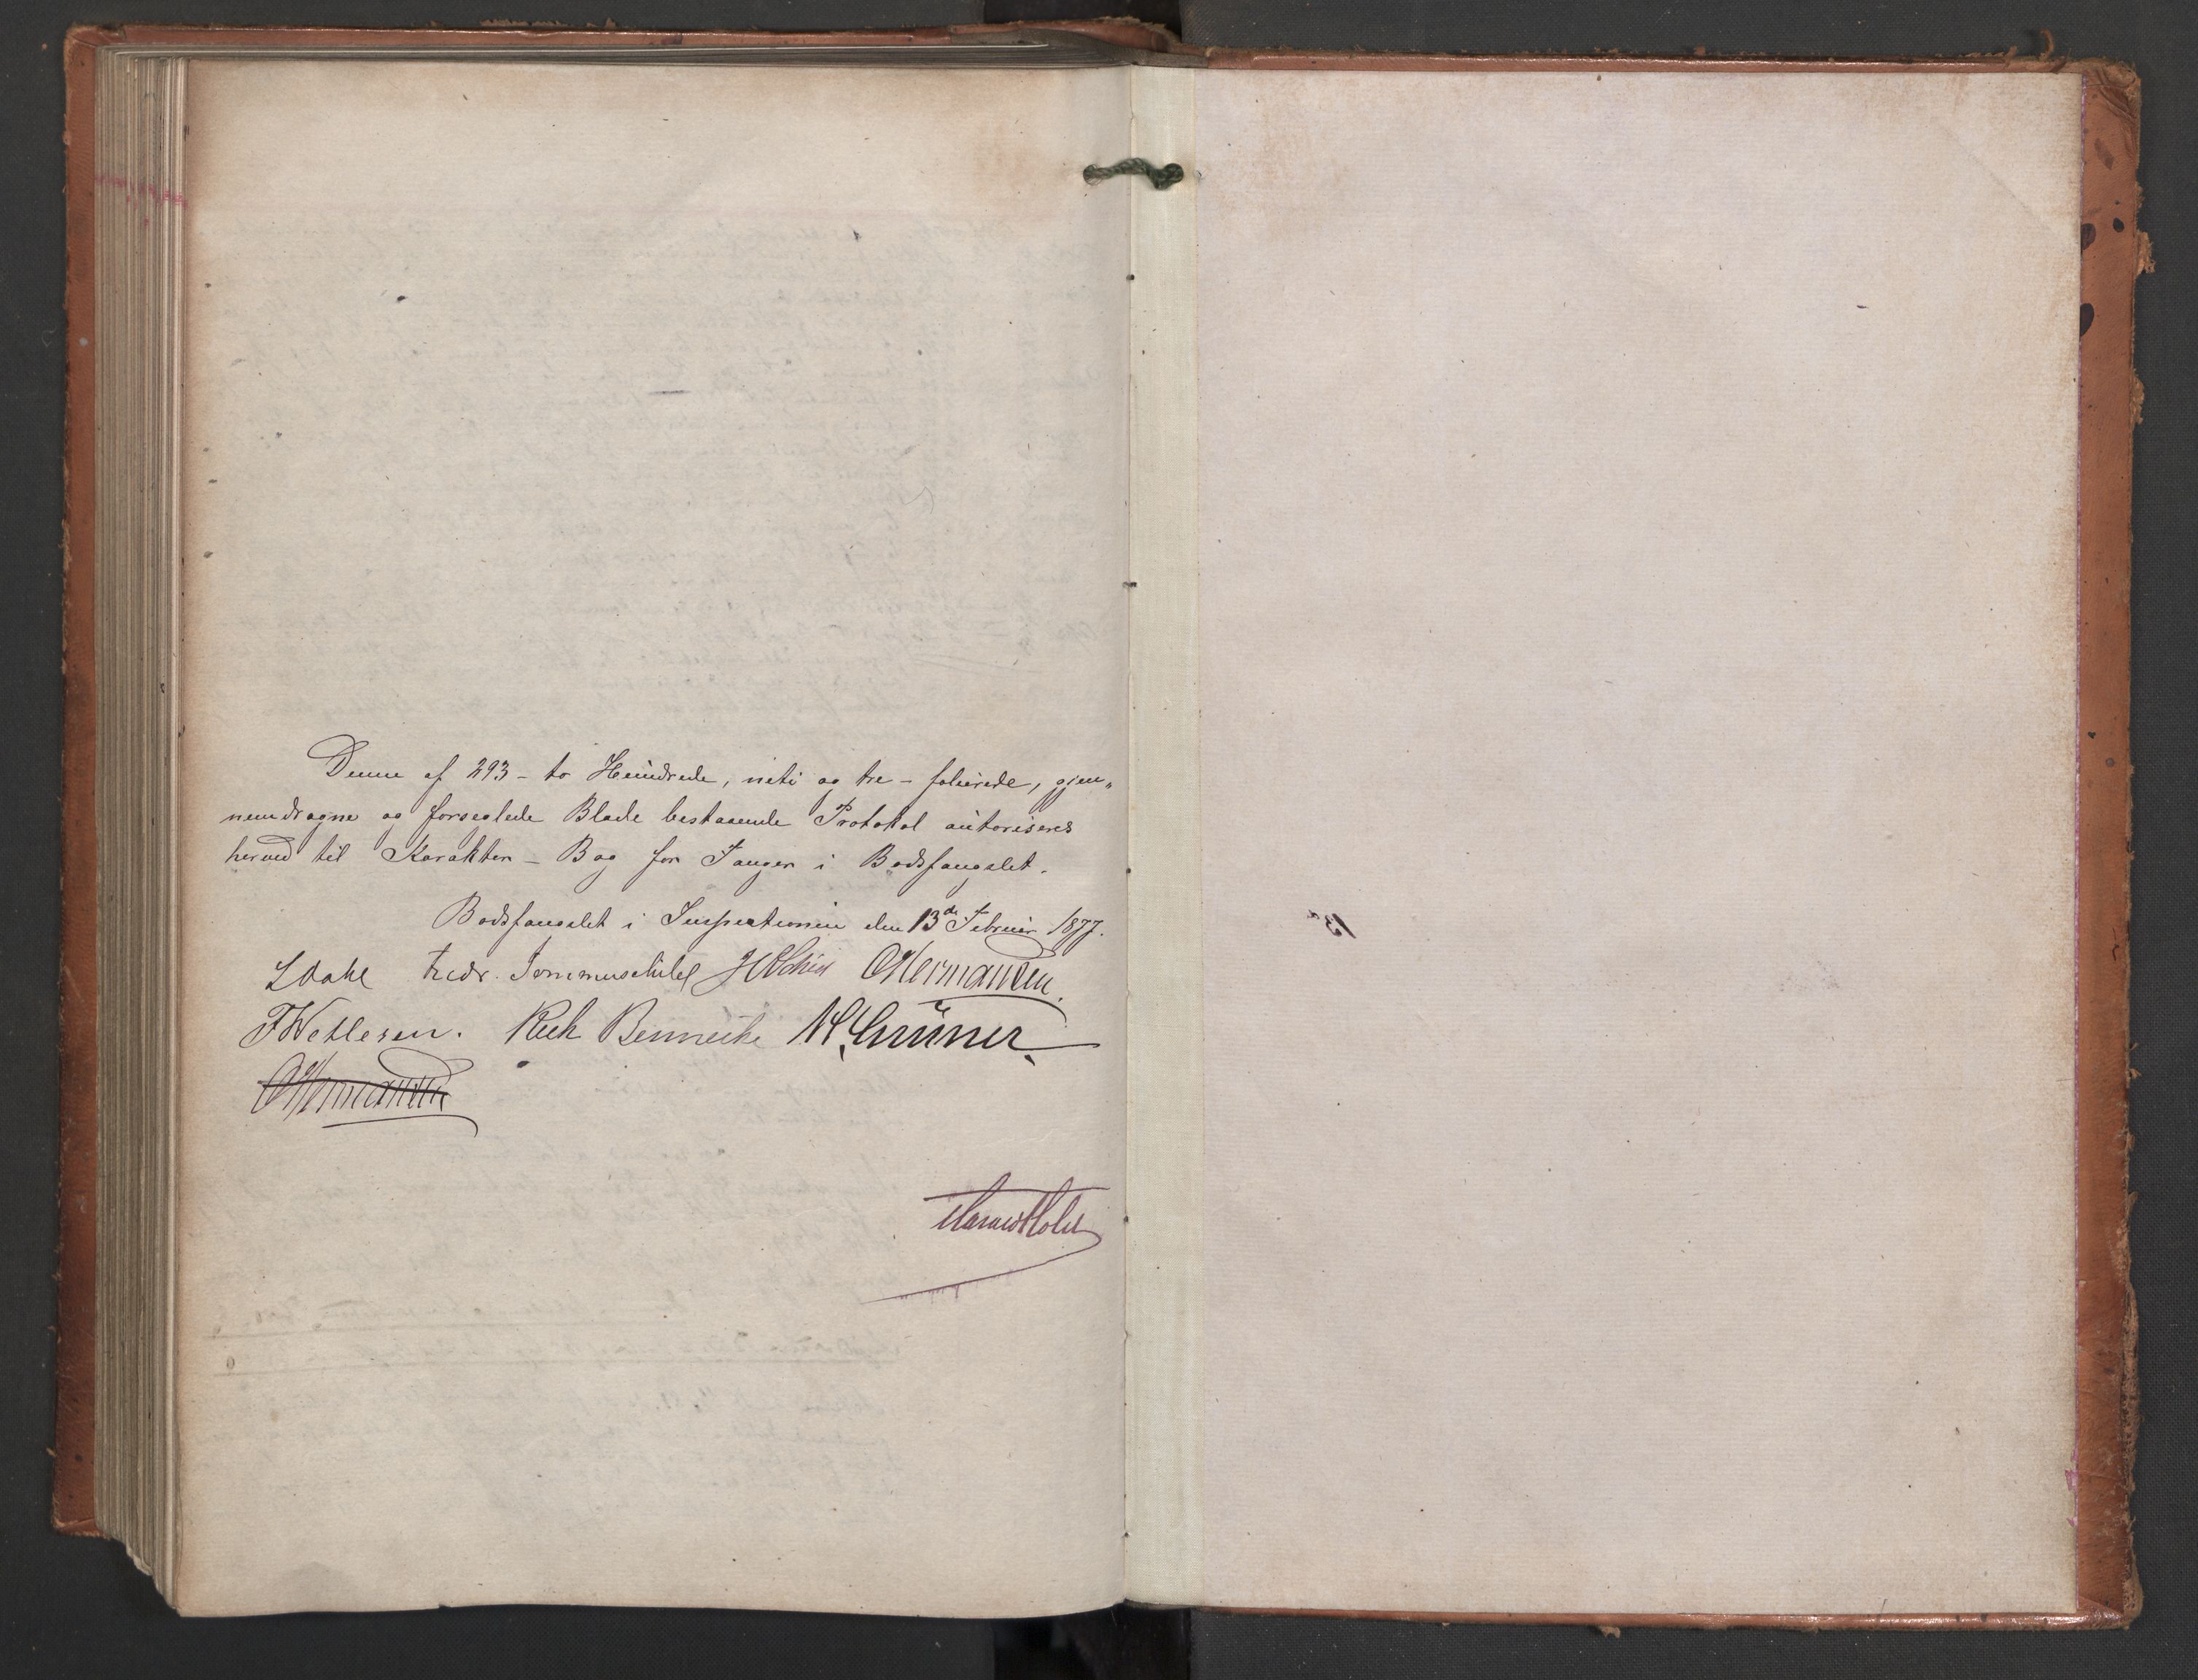 Denne af 293 – to Hundrede, niti og tre – folierede, gjen„
nemdragne og forseglede Blade bestaaende Protokol autoriseres
herved til Karakter – Bog for Fanger i Bodsfængslet.
Bodsfængslet i Inspectionen den 13de Februar 1877.
L Dahl Fredr. OHermansen
FWetlesen. Rich Bennecke
OHermansen
Harald Holst
13d